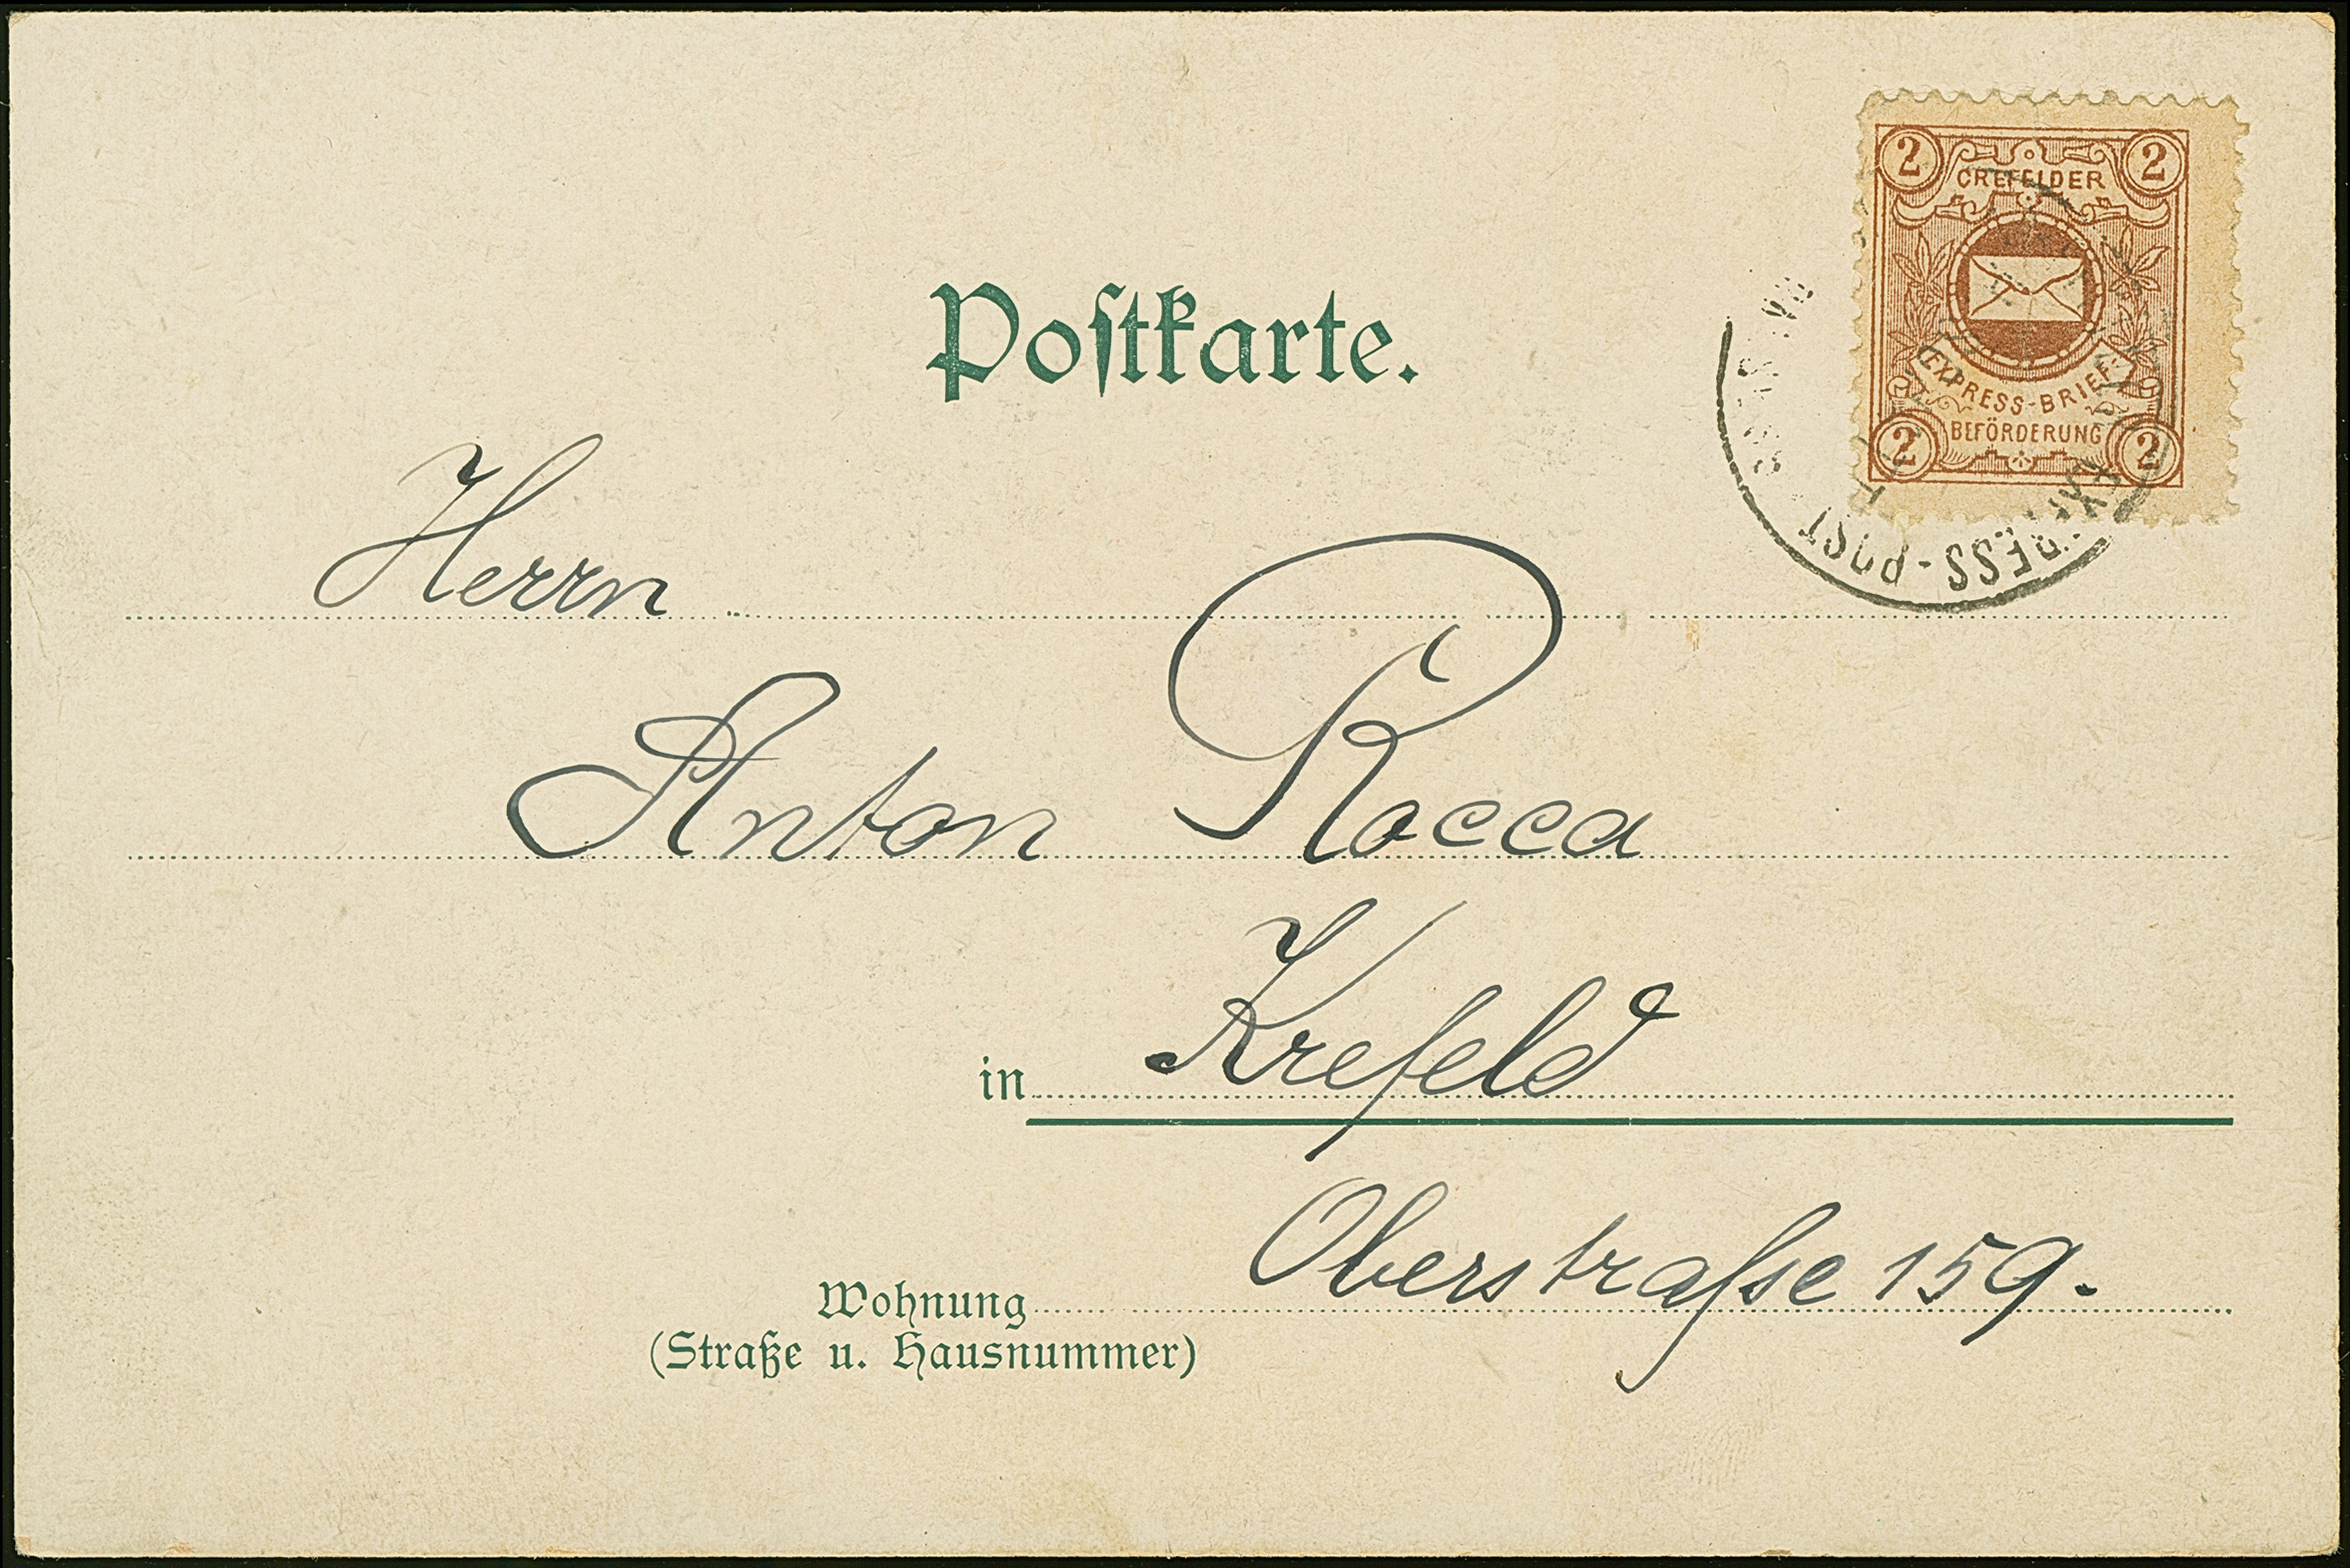 Postkarte.
2 2
CREFELDER
EXPRESS-BRIEF
BEFÖRDERUNG
2 2
EXPRESS-POST
Herrn
Anton Rocca
in Krefeld
Oberstraſse 159.
Wohnung
(Straße u. Hausnummer)